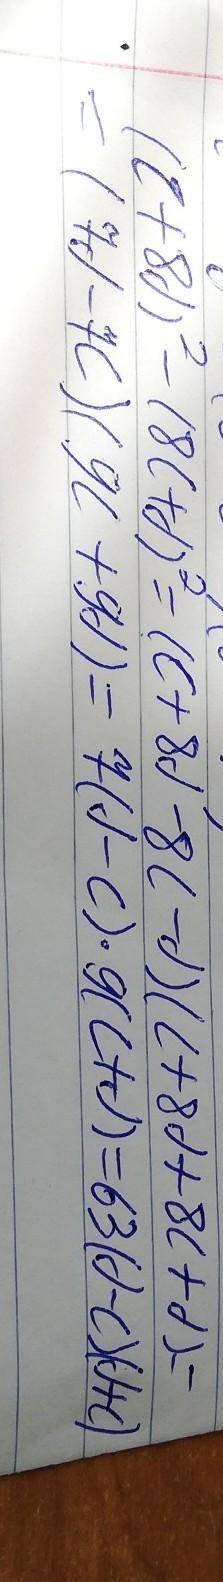 (c+8d)² - (8c+d)² = (c+8d-8c-d)(c+8d+8c+d) =
= (7d-7c)(9c+9d) = 7(d-c)·9(c+d) = 63(d-c)(d+c)